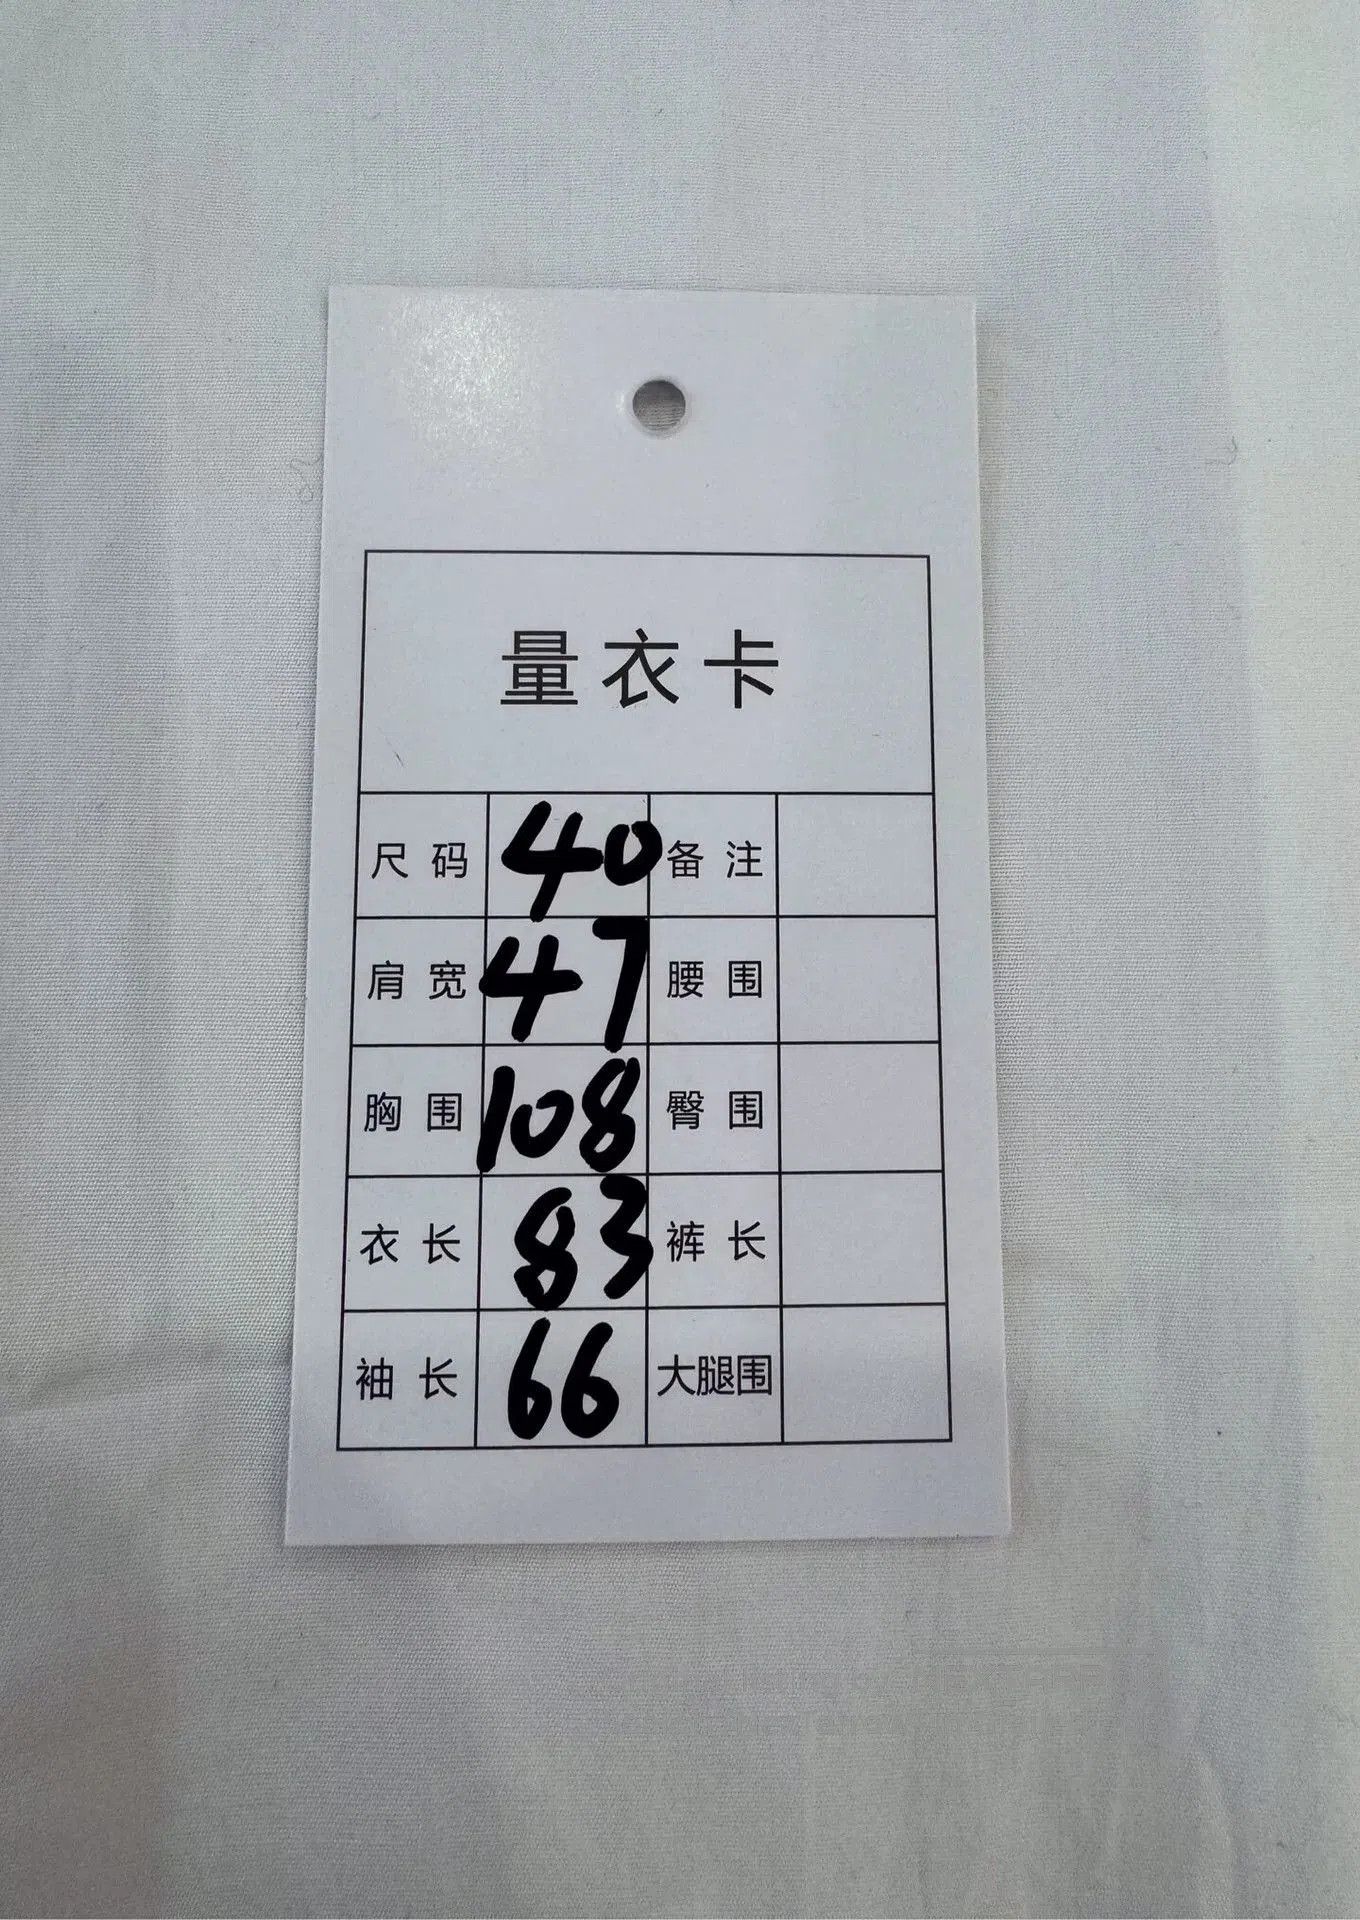 量衣卡
尺码 40 备注
肩宽 47 腰围
胸围 108 臀围
衣长 83 裤长
袖长 66 大腿围